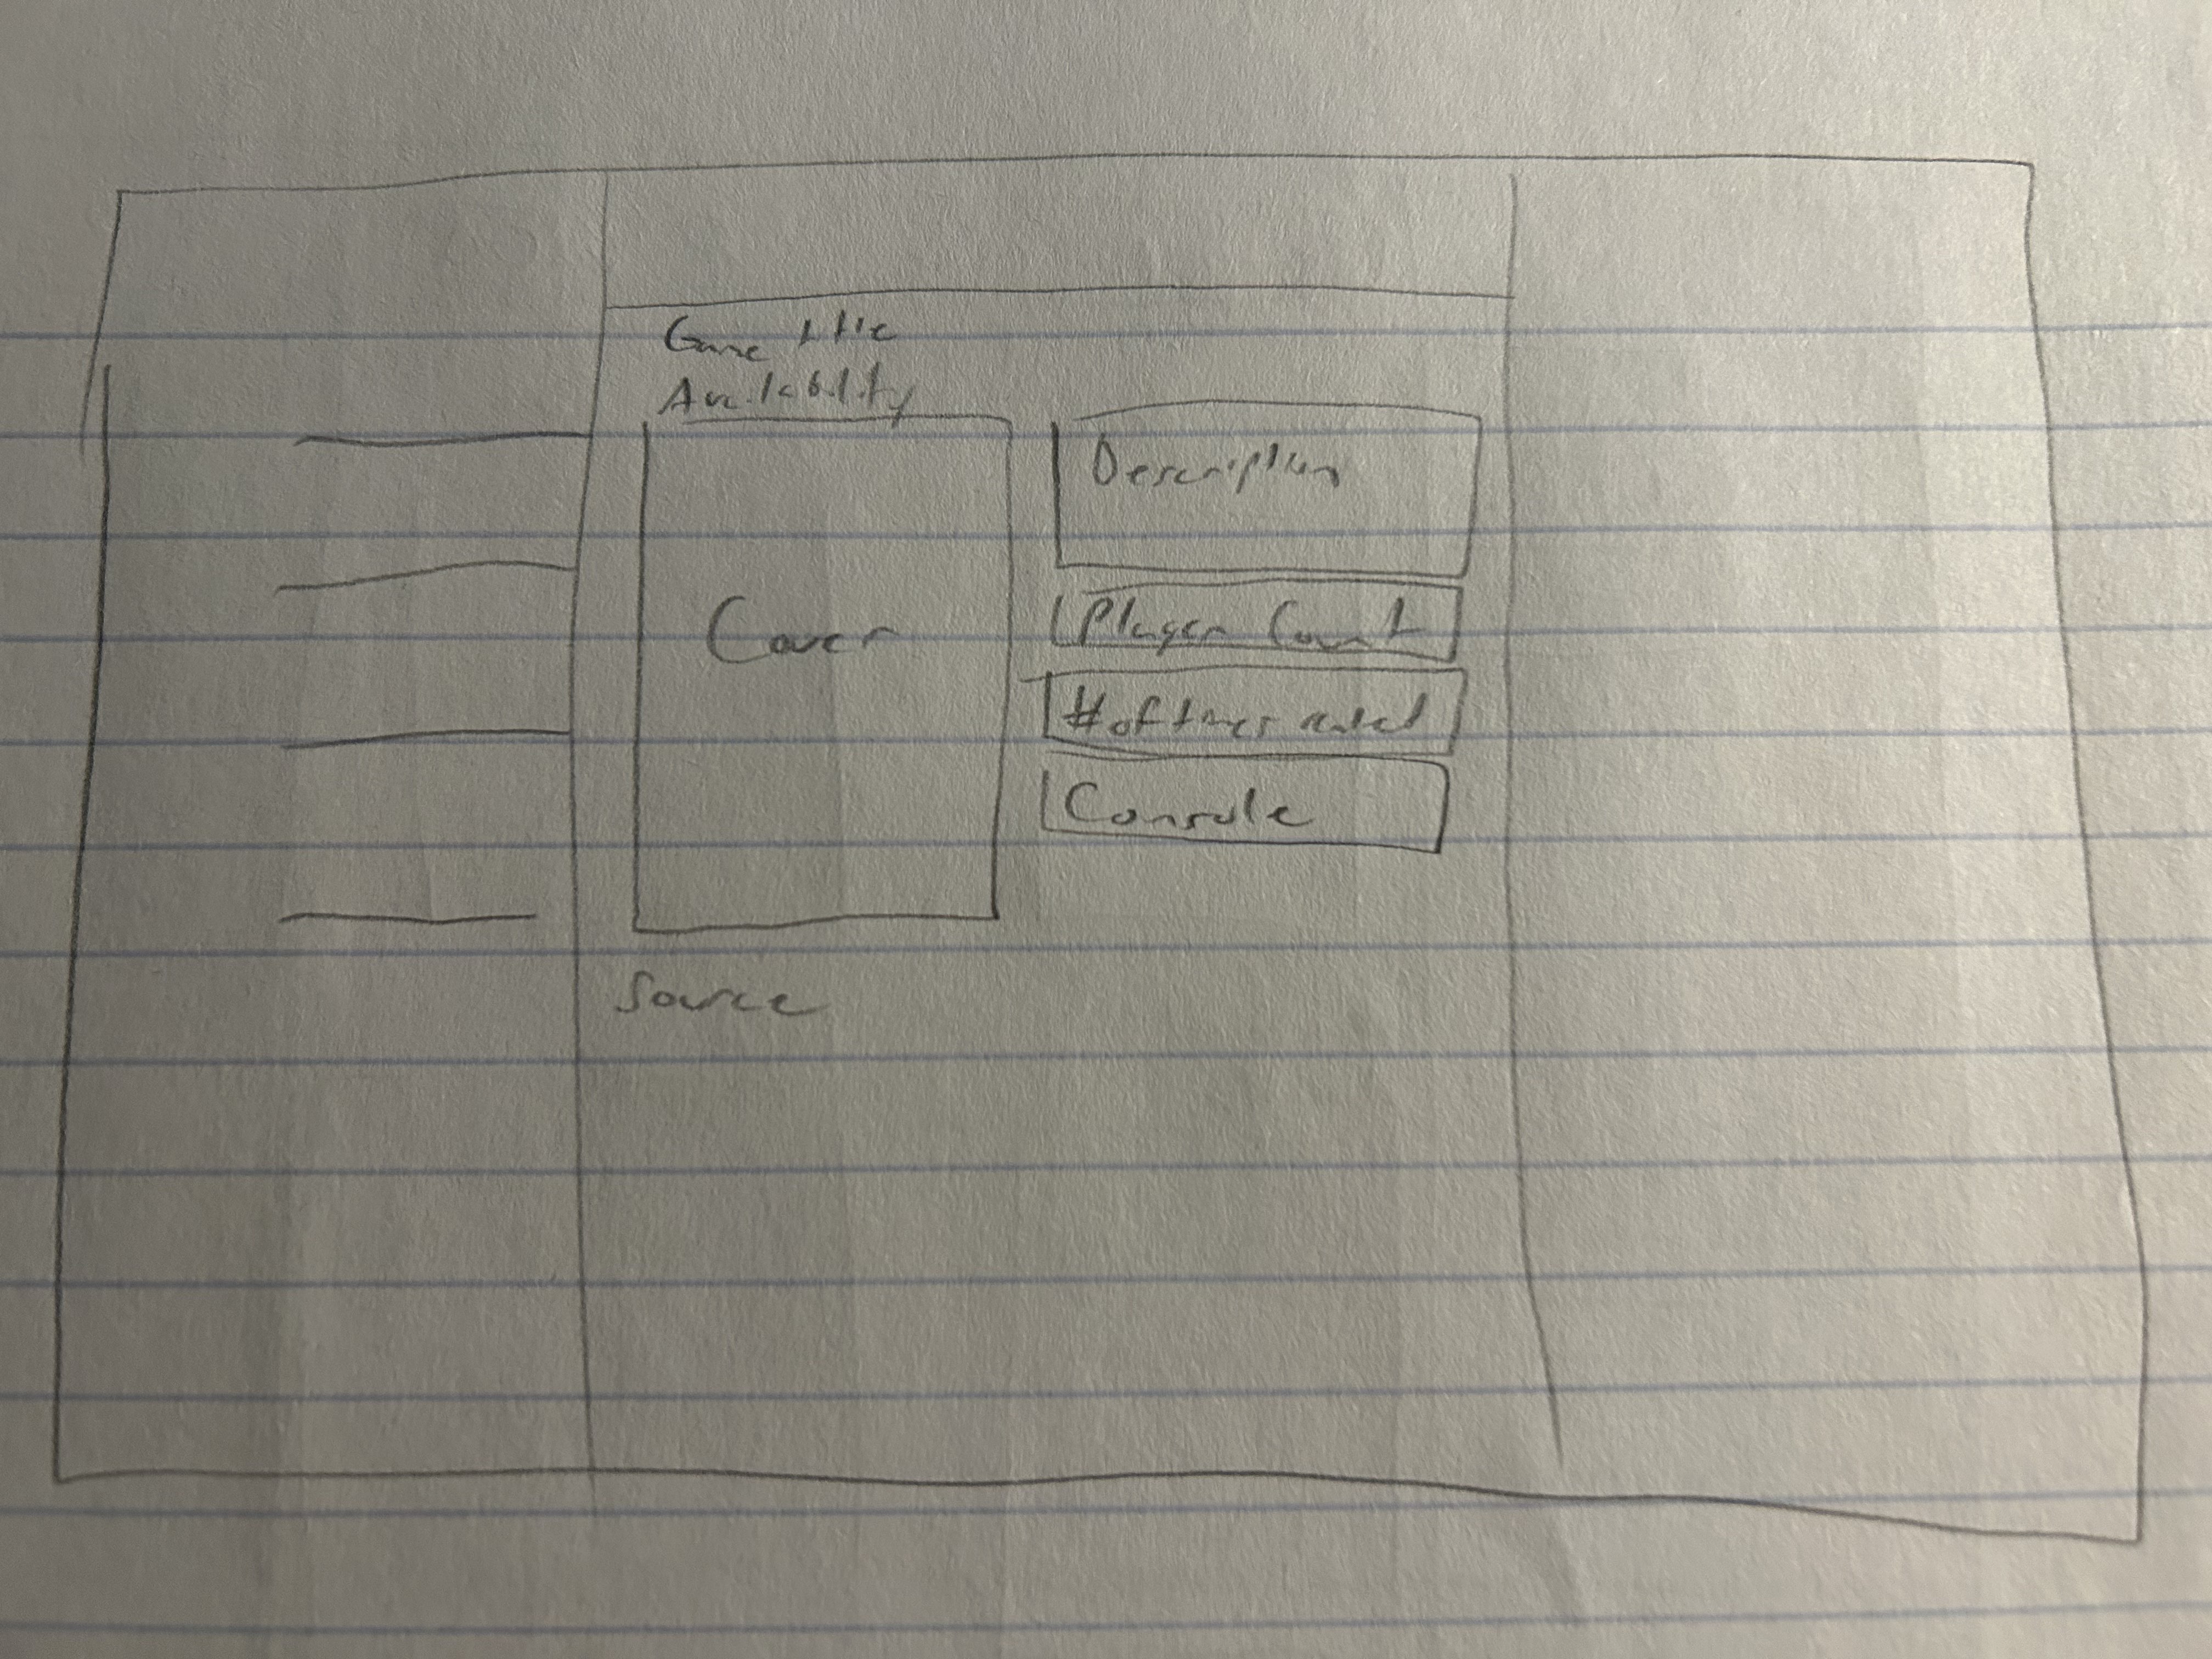 Game title
Availability
Cover
Description
Player Count
# of times rented
Console
Source